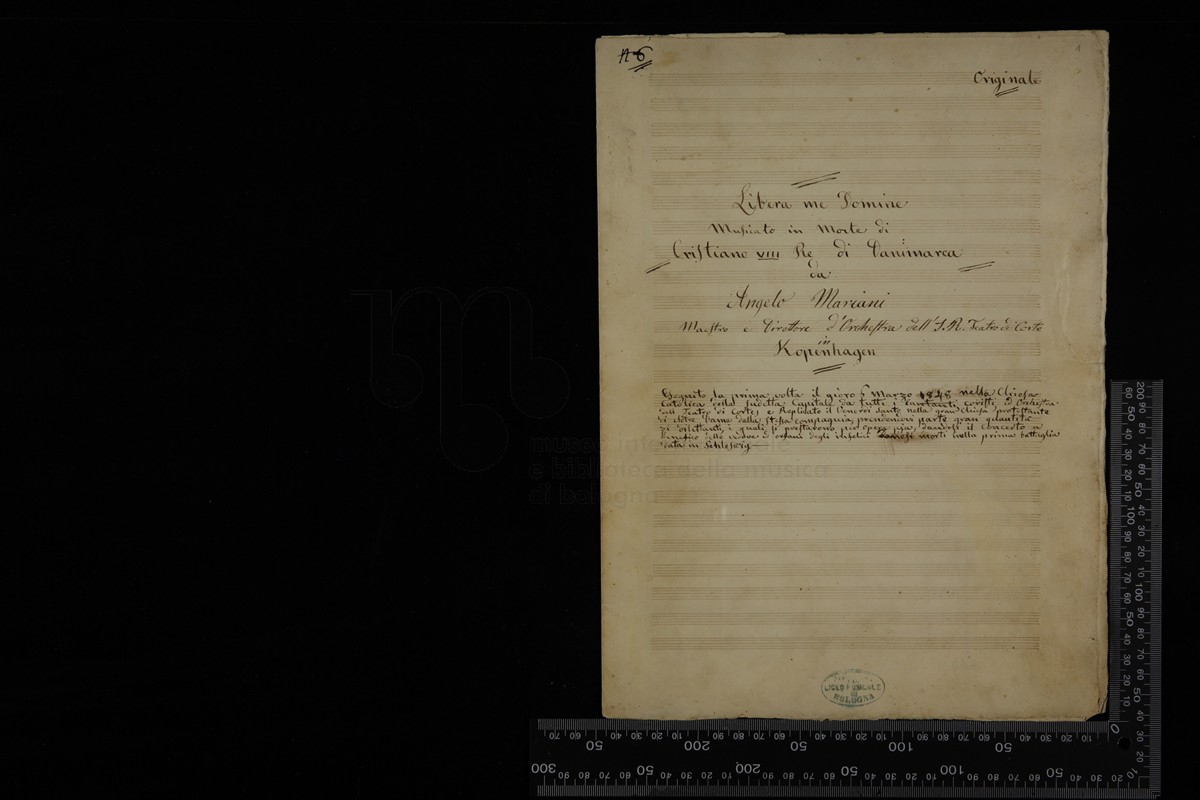 N 6
Originale
Libera me Domine
Musicato in Morte di
Cristiano VIII Re di Danimarca
da
Angelo Mariani
Maestro e Direttore d'Orchestra dell' I. R. Teatro di Corte
in
Kopenhagen
Eseguito la prima volta il giorno 6 Marzo 1848 nella Chiesa
Catolica della sudetta Capitale da tutti i Cantanti coristi, ed Orchestra
del Teatro di Corte; e Replicato il Venerdì Santo nella gran Chiesa protestante
di Dame dalla stessa compagnia, prendendovi parte gran quantità
di dilettanti, i quali si prestarono per opera pia, dandosi il concerto a
beneficio delle vedove ed orfani degli infelici Danesi morti nella prima battaglia
data in Schleswig
LICEO MUSICALE
DI
BOLOGNA
museo internazionale
e biblioteca della musica
di bologna